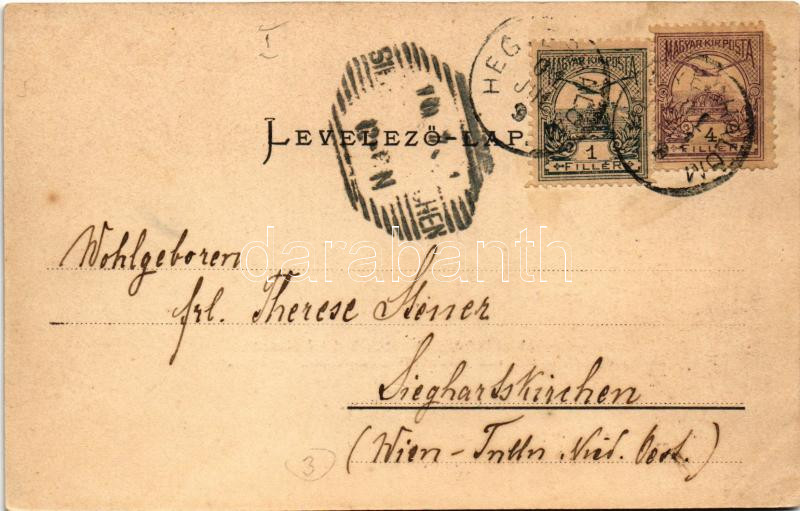 I
MAGYAR·KIR·POSTA
1
FILLÉR
MAGYAR·KIR·POSTA
4
FILLÉR
HEGY
LEVELEZŐ-LAP.
SIE
CHEN
darabanth
Wohlgeboren
Frl. Therese Steiner
Sieghartskirchen
(Wien - Tulln Nied. Oest.)
3